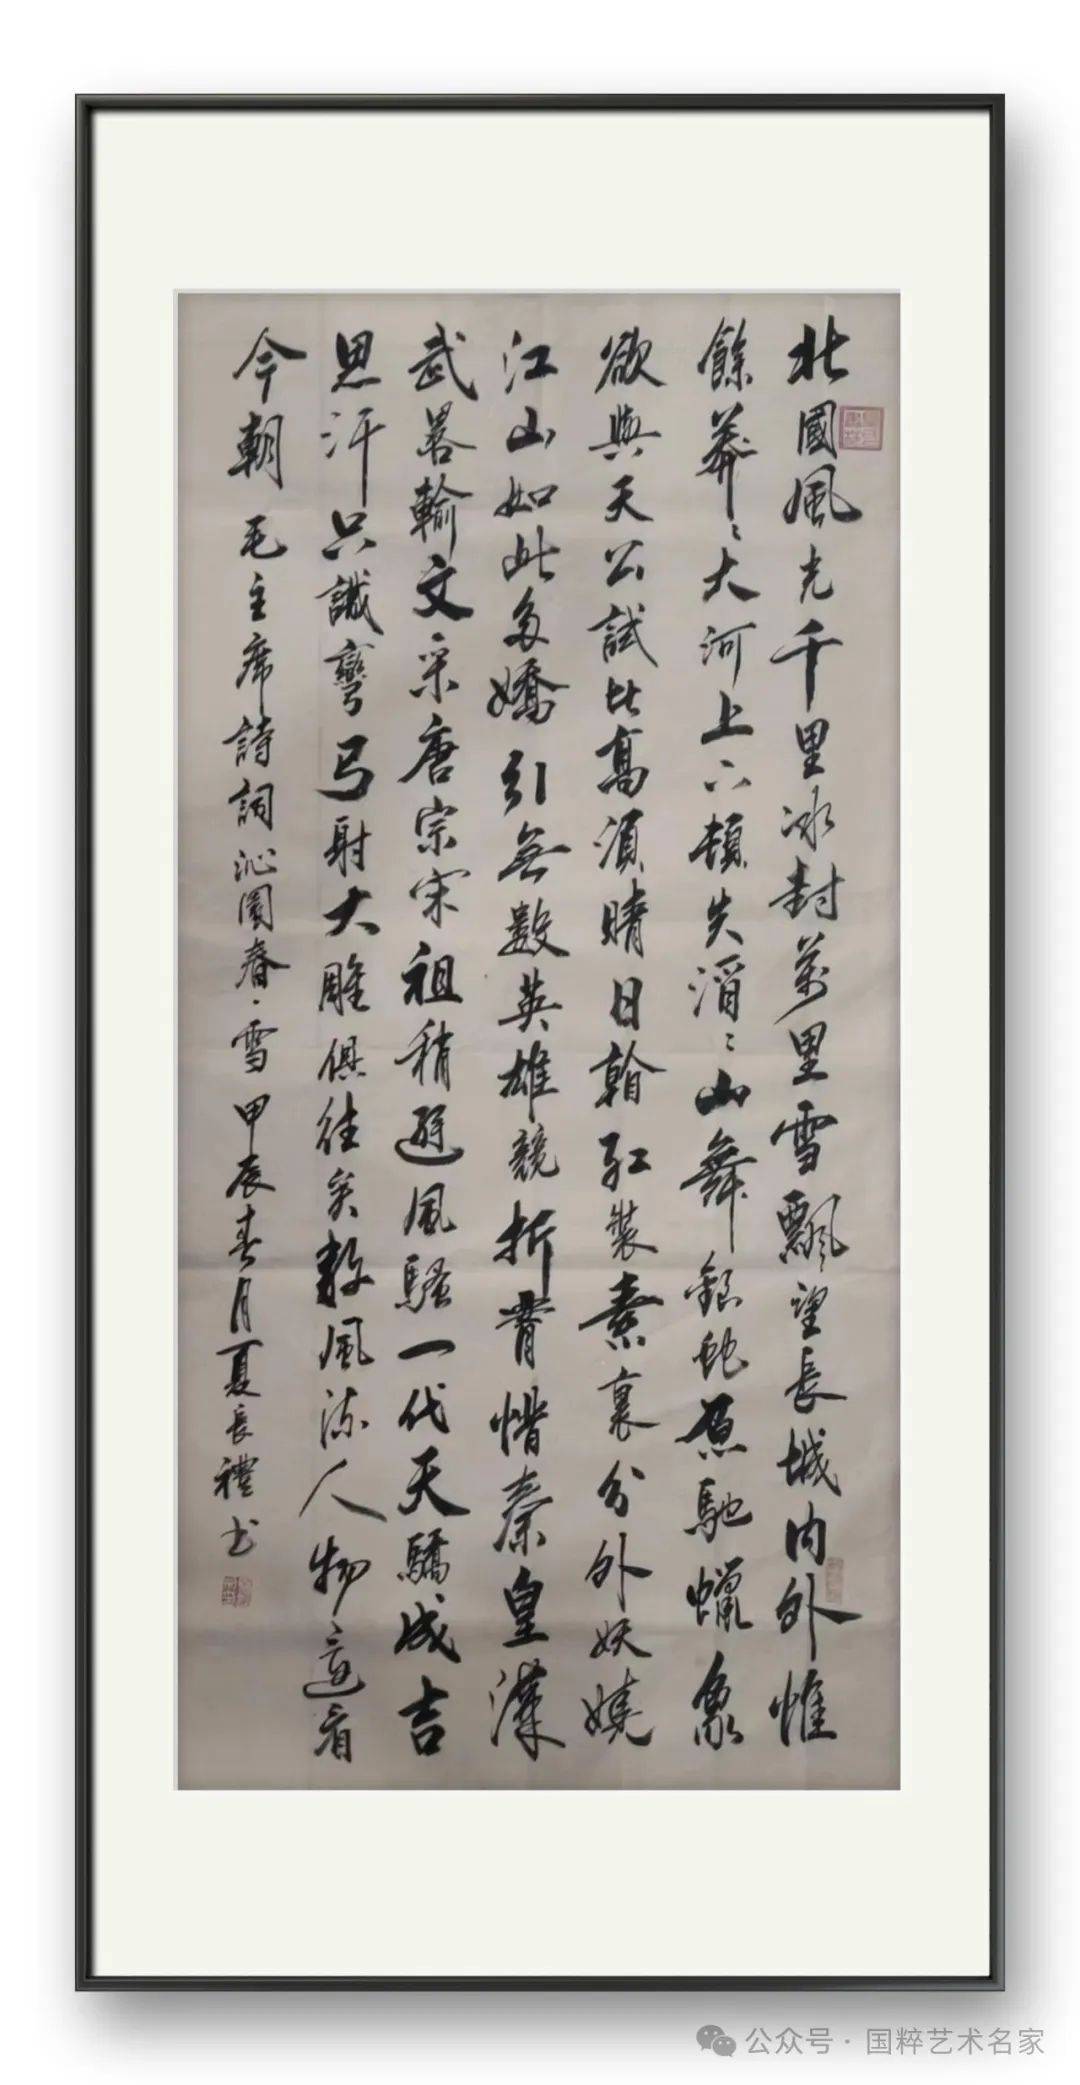 北國風光千里冰封萬里雪飄望長城內外惟
餘莽〻大河上下頓失滔〻山舞銀蛇原馳蠟象
欲與天公試比高須晴日看紅裝素裹分外妖嬈
江山如此多嬌引無數英雄競折腰惜秦皇漢
武畧輸文采唐宗宋祖稍遜風騷一代天驕成吉
思汗只識彎弓射大雕俱往矣數風流人物還看
今朝 毛主席詩詞沁園春·雪 甲辰春月夏長禮书
公众号·国粹艺术名家